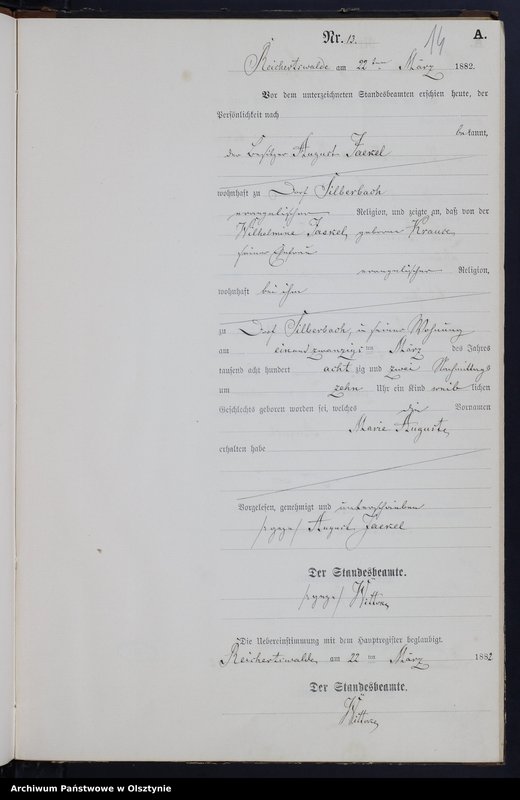 Nr. 13.
14
A.
Reichertswalde am 22ten März 1882.
Vor dem unterzeichneten Standesbeamten erschien heute, der
Persönlichkeit nach
bekannt,
der Besitzer August Jaekel
wohnhaft zu Dorf Silberbach
evangelischer Religion, und zeigte an, daß von der
Wilhelmine Jaekel, geborene Krause,
seiner Ehefrau
evangelischer Religion,
wohnhaft bei ihm
zu Dorf Silberbach, in seiner Wohnung
am einundzwanzigsten März des Jahres
tausend acht hundert achtzig und zwei Nachmittags
um zehn Uhr ein Kind weiblichen
Geschlechts geboren worden sei, welches die Vornamen
Marie Auguste,
erhalten habe
Vorgelesen, genehmigt und unterschrieben
/:gez:/ August Jaekel
Der Standesbeamte.
/:gez:/
Die Uebereinstimmung mit dem Hauptregister beglaubigt.
Reichertswalde, am 22ten März 1882
Der Standesbeamte.
Archiwum Państwowe w Olsztynie